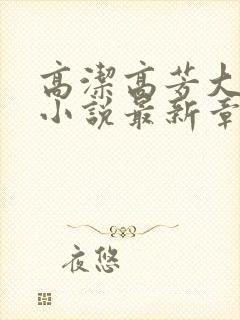 高潔高芳大
小說最新章
夜悠